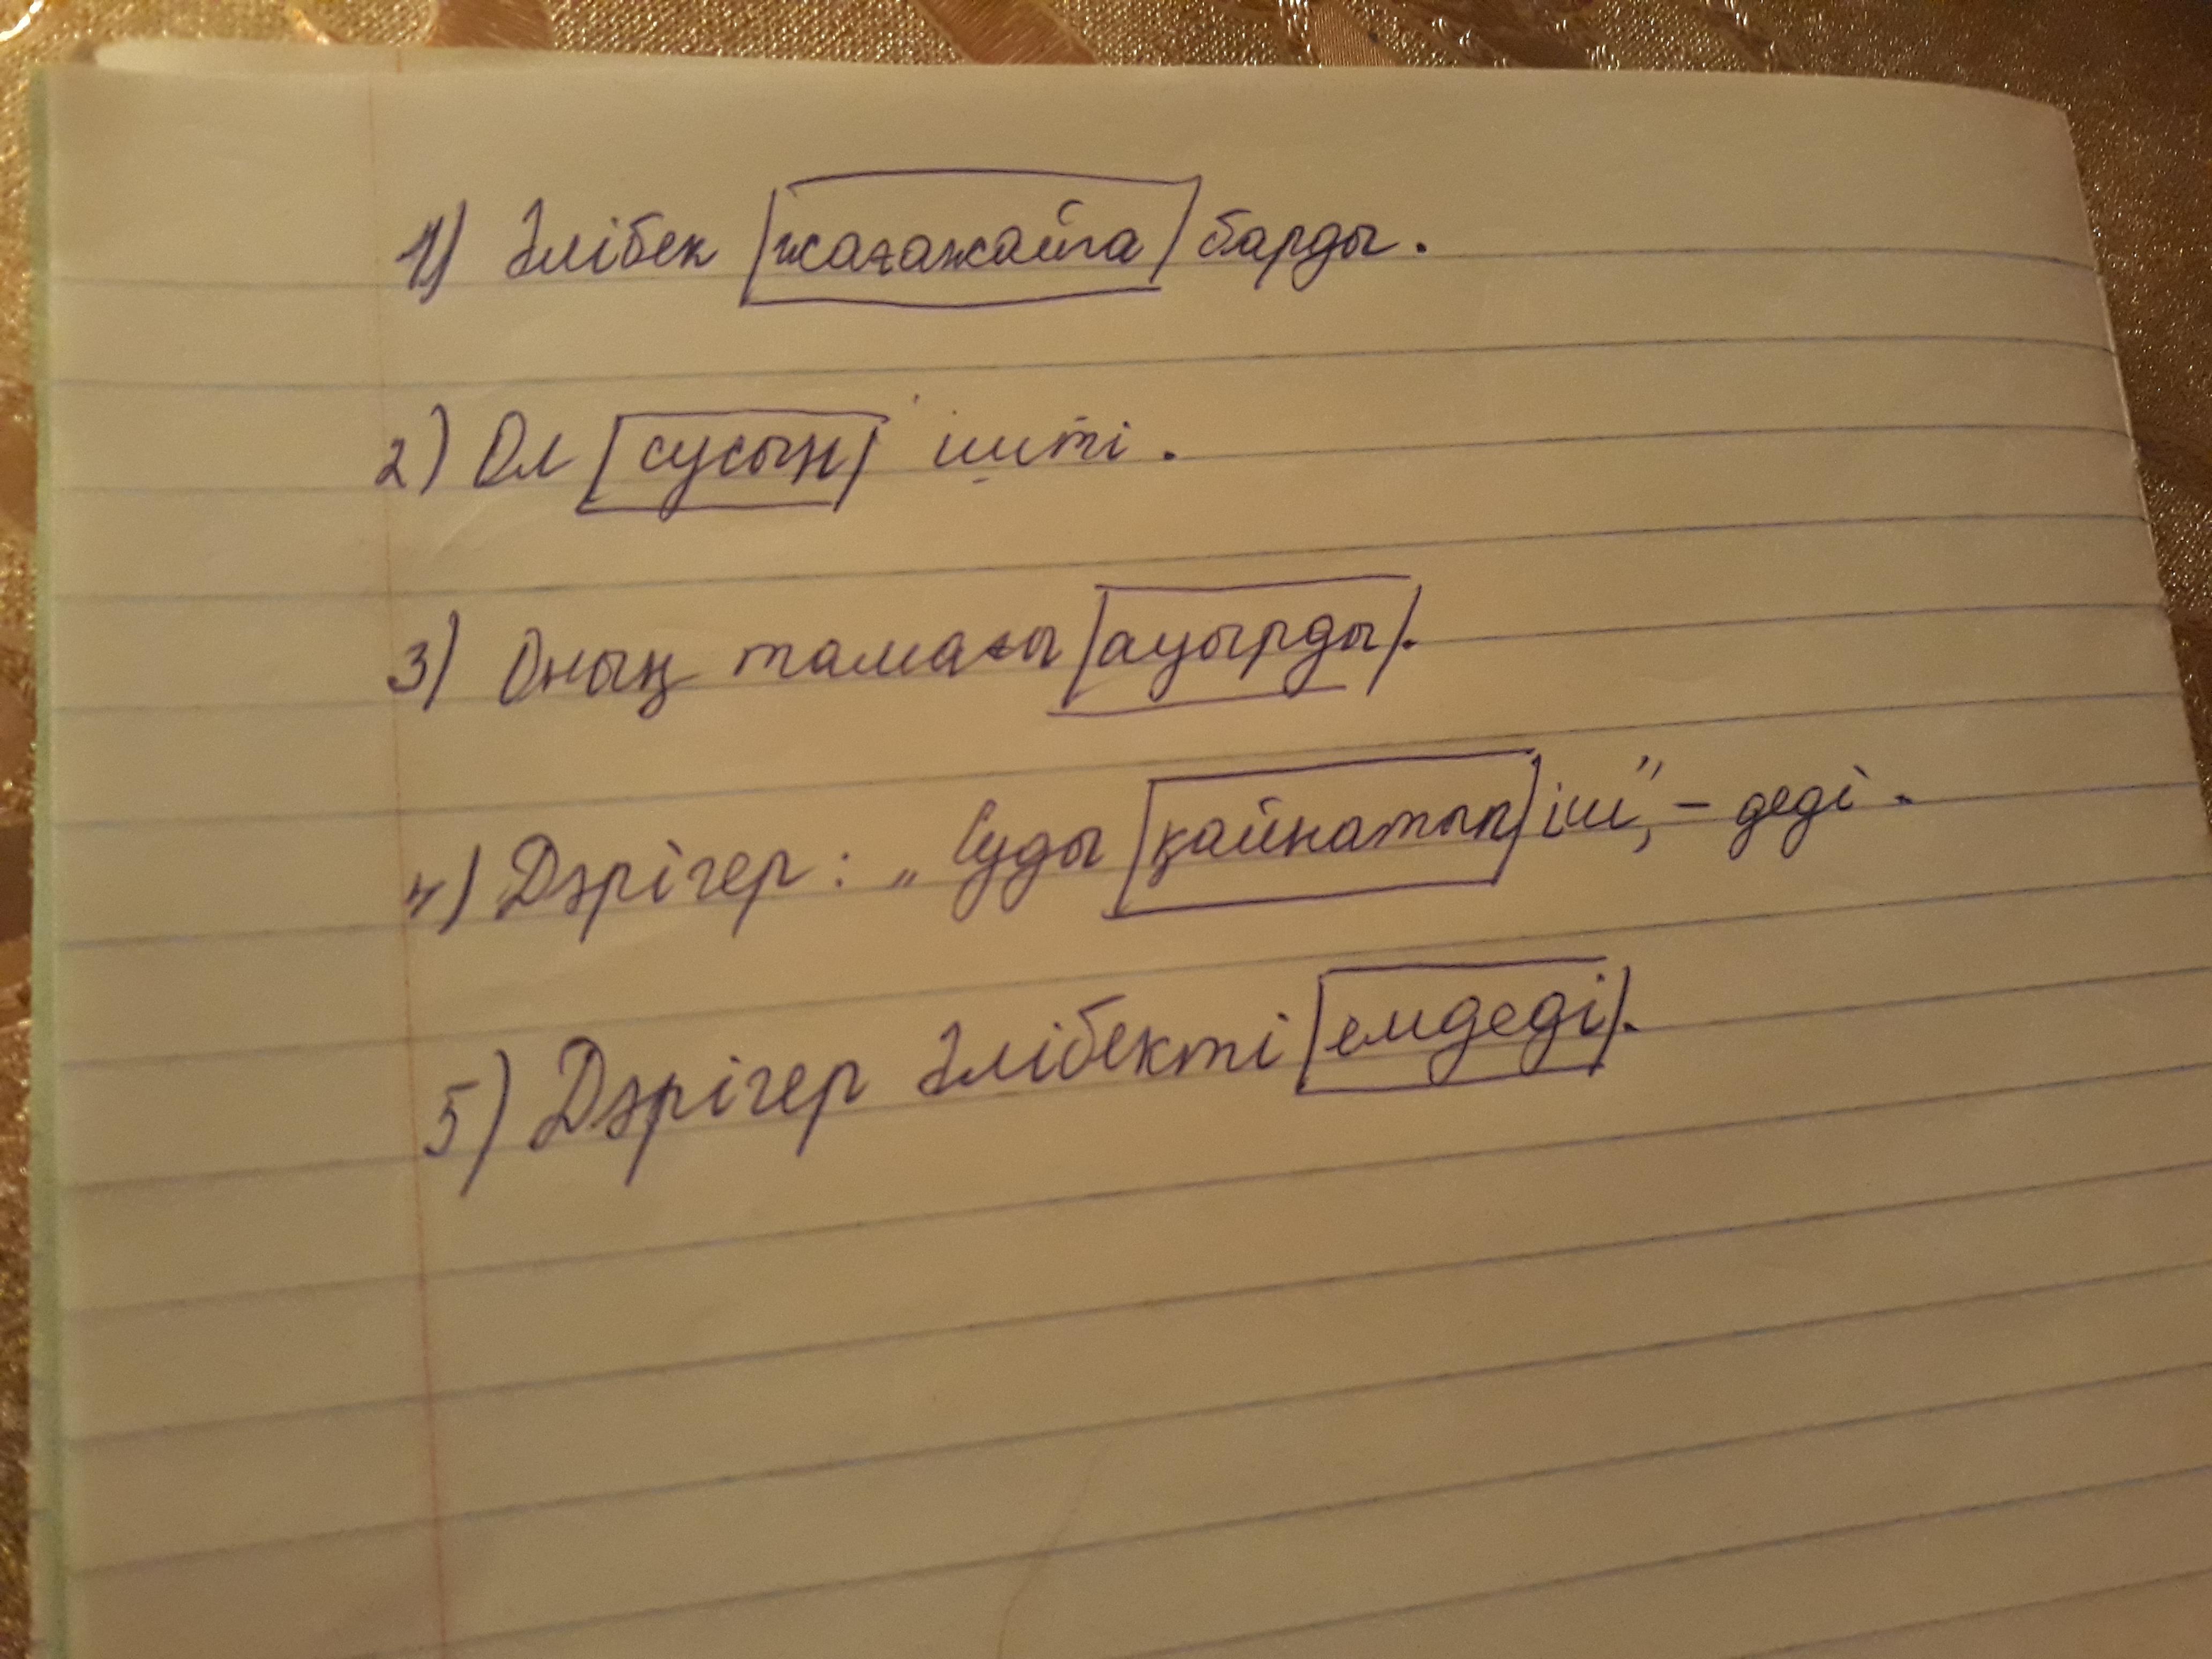 1) Әлібек жағажайға барды.
2) Ол сусын ішті.
3) Оның тамағы ауырды.
4) Дәрігер: „Суды қайнатып іш”, - деді.
5) Дәрігер Әлібекті емдеді.